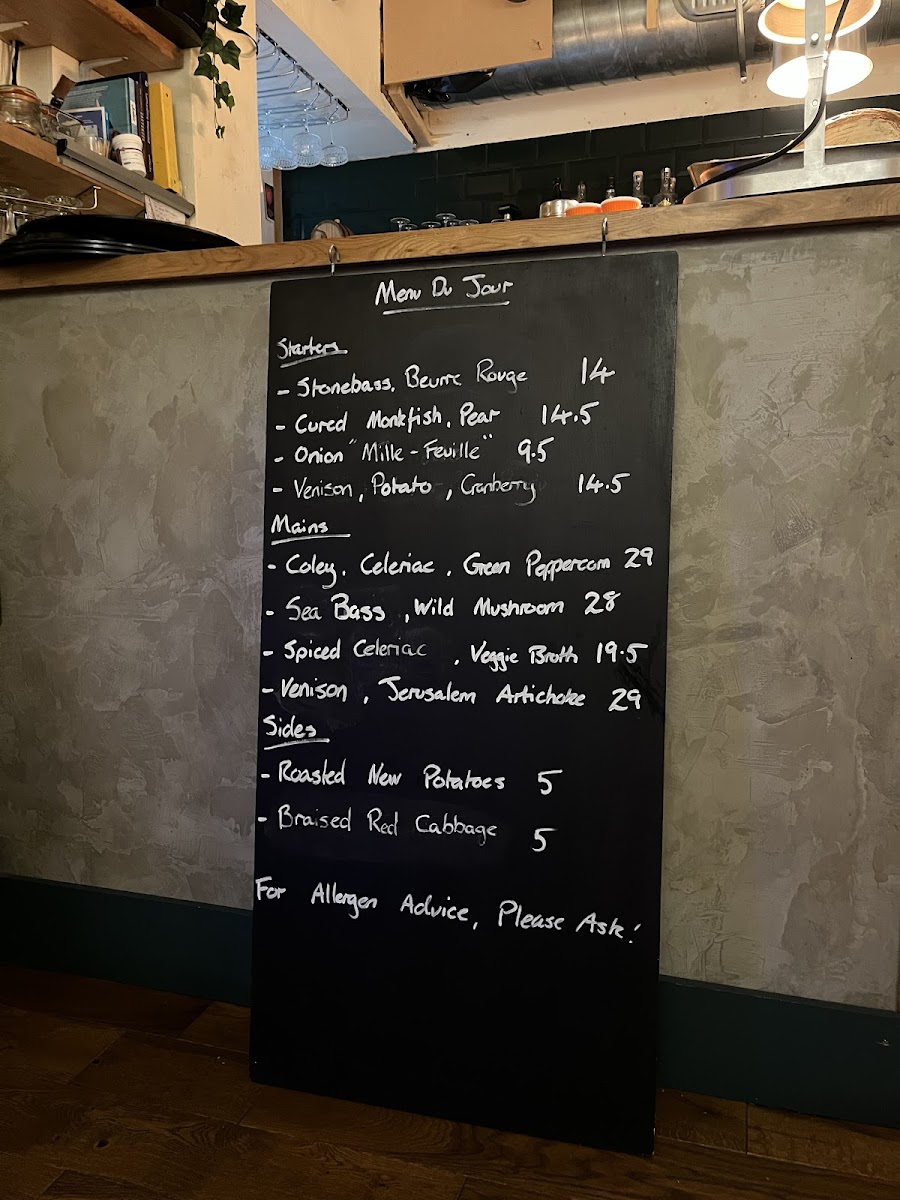 Menu Du Jour
Starters
- Stonebass, Beurre Rouge 14
- Cured Monkfish, Pear 14.5
- Onion "Mille-Feuille" 9.5
- Venison, Potato, Cranberry 14.5
Mains
- Coley, Celeriac, Green Peppercorn 29
- Sea Bass, Wild Mushroom 28
- Spiced Celeriac, Veggie Broth 19.5
- Venison, Jerusalem Artichoke 29
Sides
- Roasted New Potatoes 5
- Braised Red Cabbage 5
For Allergen Advice, Please Ask!